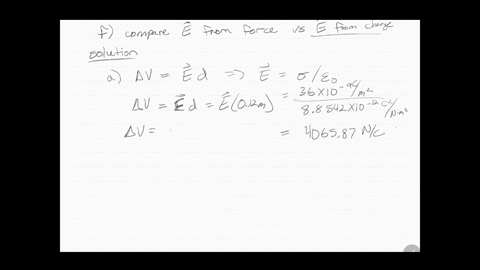 f) compare E⃗ from force vs E⃗ from charge
solution
a) ΔV = E⃗ d ⇒ E⃗ = σ/ε₀
ΔV = E d = E⃗(0.12m) = 36×10⁻⁹ C/m² / 8.8542×10⁻¹² C²/N·m²
ΔV = = 4065.87 N/C